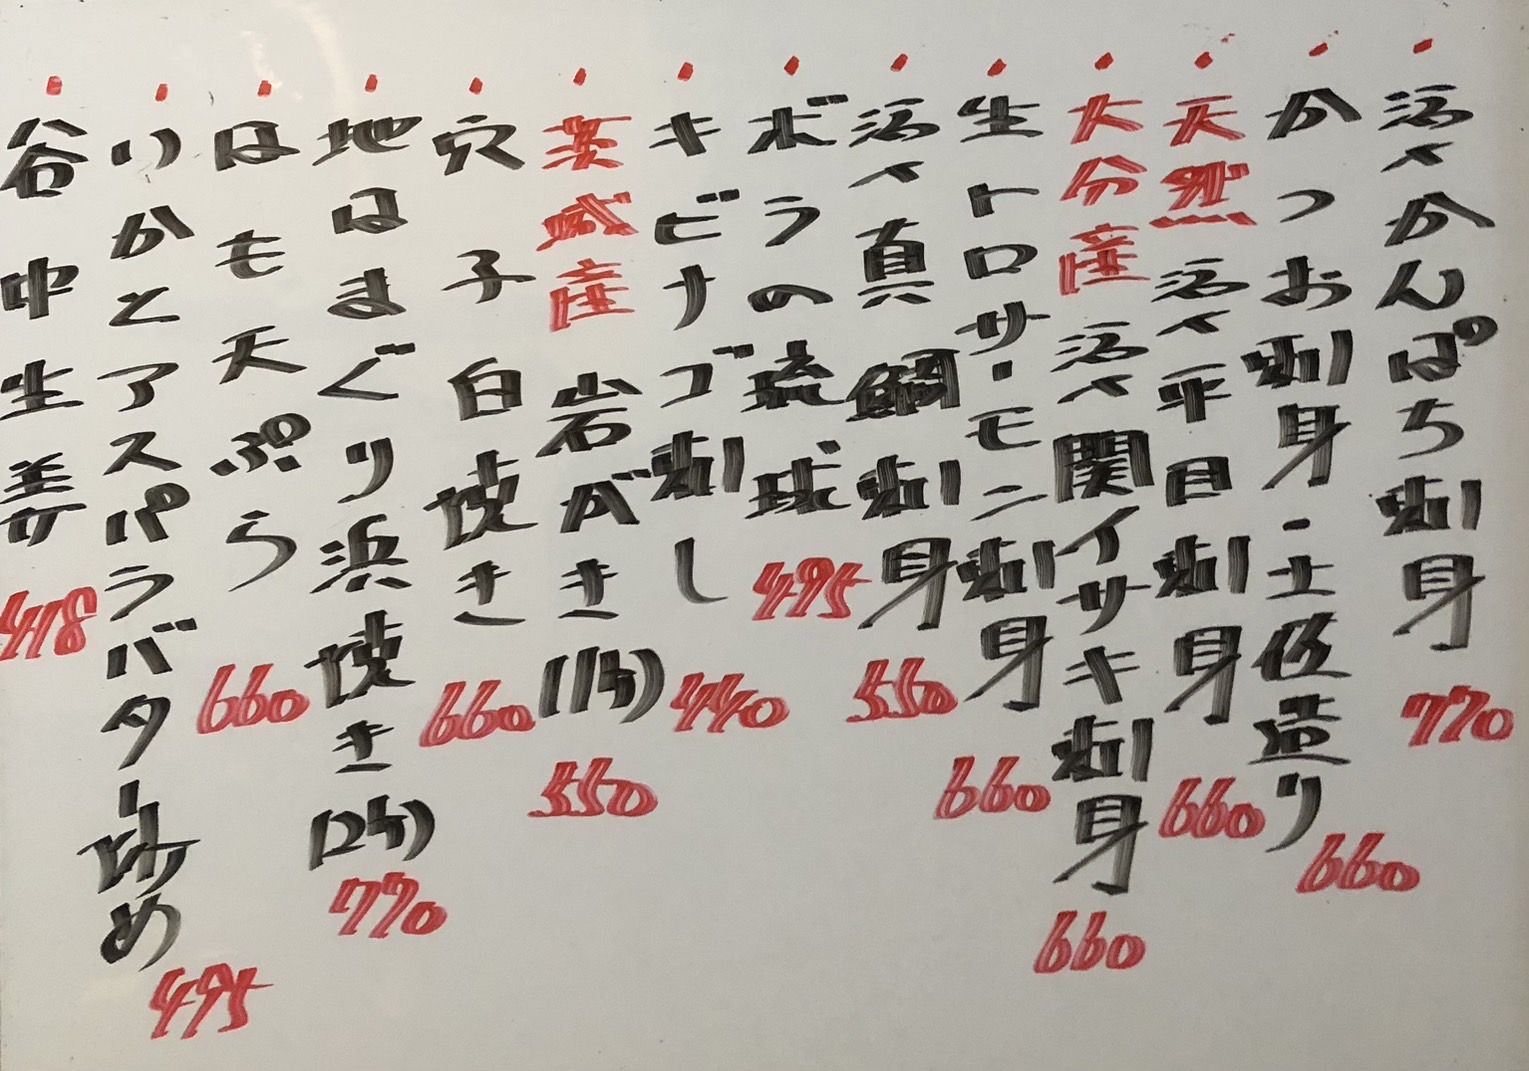 ・活〆かんぱち刺身 770
・かつお刺身・土佐造り 660
・天然活〆平目刺身 660
・大分産活〆関イサキ刺身 660
・生トロサーモン刺身 660
・活〆真鯛刺身 550
・ボラの琉球 495
・キビナゴ刺し 440
・茨城産岩がき(1ケ) 550
・穴子白焼き 660
・地はまぐり浜焼き(2ケ) 770
・はも天ぷら 660
・いかとアスパラバター炒め 495
・谷中生姜 418